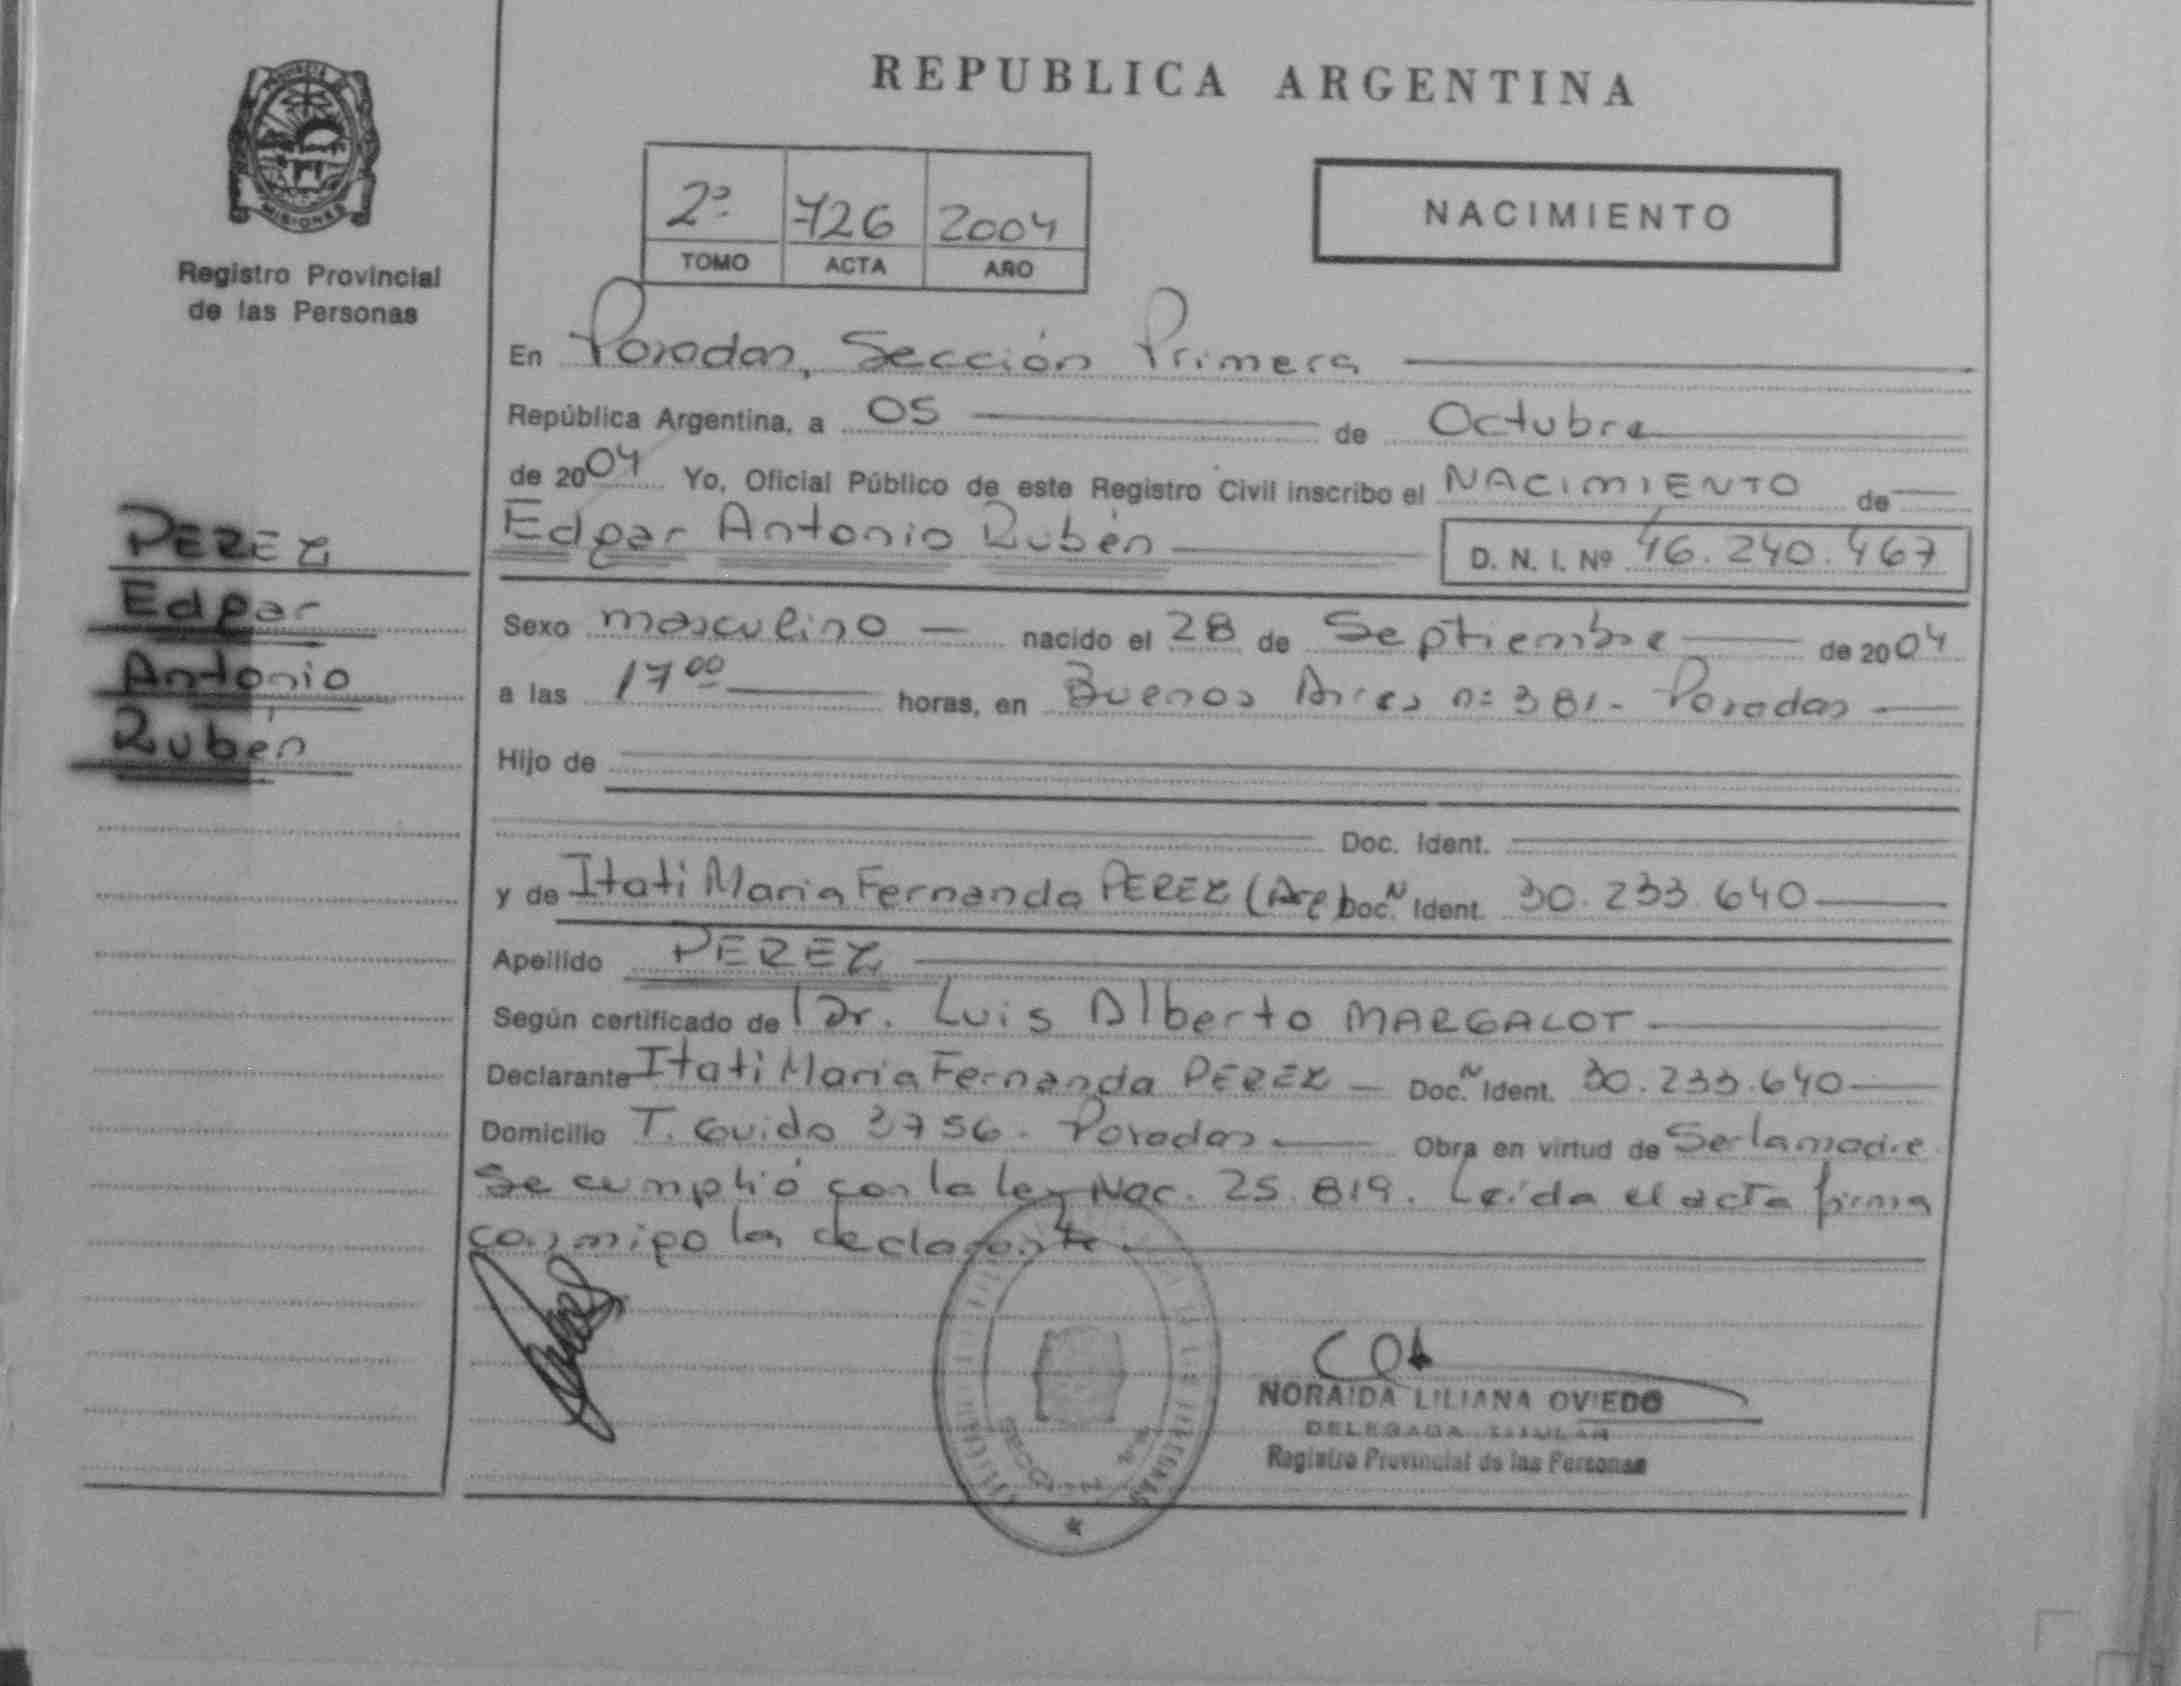 REPUBLICA ARGENTINA
MISIONES
Registro Provincial
de las Personas
2º 726 2004
TOMO ACTA AÑO
NACIMIENTO
En Posadas, Sección Primera
República Argentina, a 05 de Octubre
de 2004 Yo, Oficial Público de este Registro Civil inscribo el NACIMIENTO de
Edgar Antonio Rubén D. N. I. Nº 46.240.467
PEREZ
Edgar
Antonio
Rubén
Sexo masculino nacido el 28 de Septiembre de 2004
a las 17 00 horas, en Buenos Aires nº 381 - Posadas
Hijo de
Doc. Ident.
y de Itati Maria Fernanda PEREZ (Arg Doc. N Ident. 30.233.640
Apellido PEREZ
Según certificado de Dr. Luis Alberto MARGALOT
Declarante Itati Maria Fernanda PEREZ - Doc. N Ident. 30.233.640
Domicilio T. Guido 3756 - Posadas Obra en virtud de Ser la madre
Se cumplió con la ley Nac. 25.819. Leída el acta firma
conmigo la declarante
NORAIDA LILIANA OVIEDO
DELEGADA TITULAR
Registro Provincial de las Personas